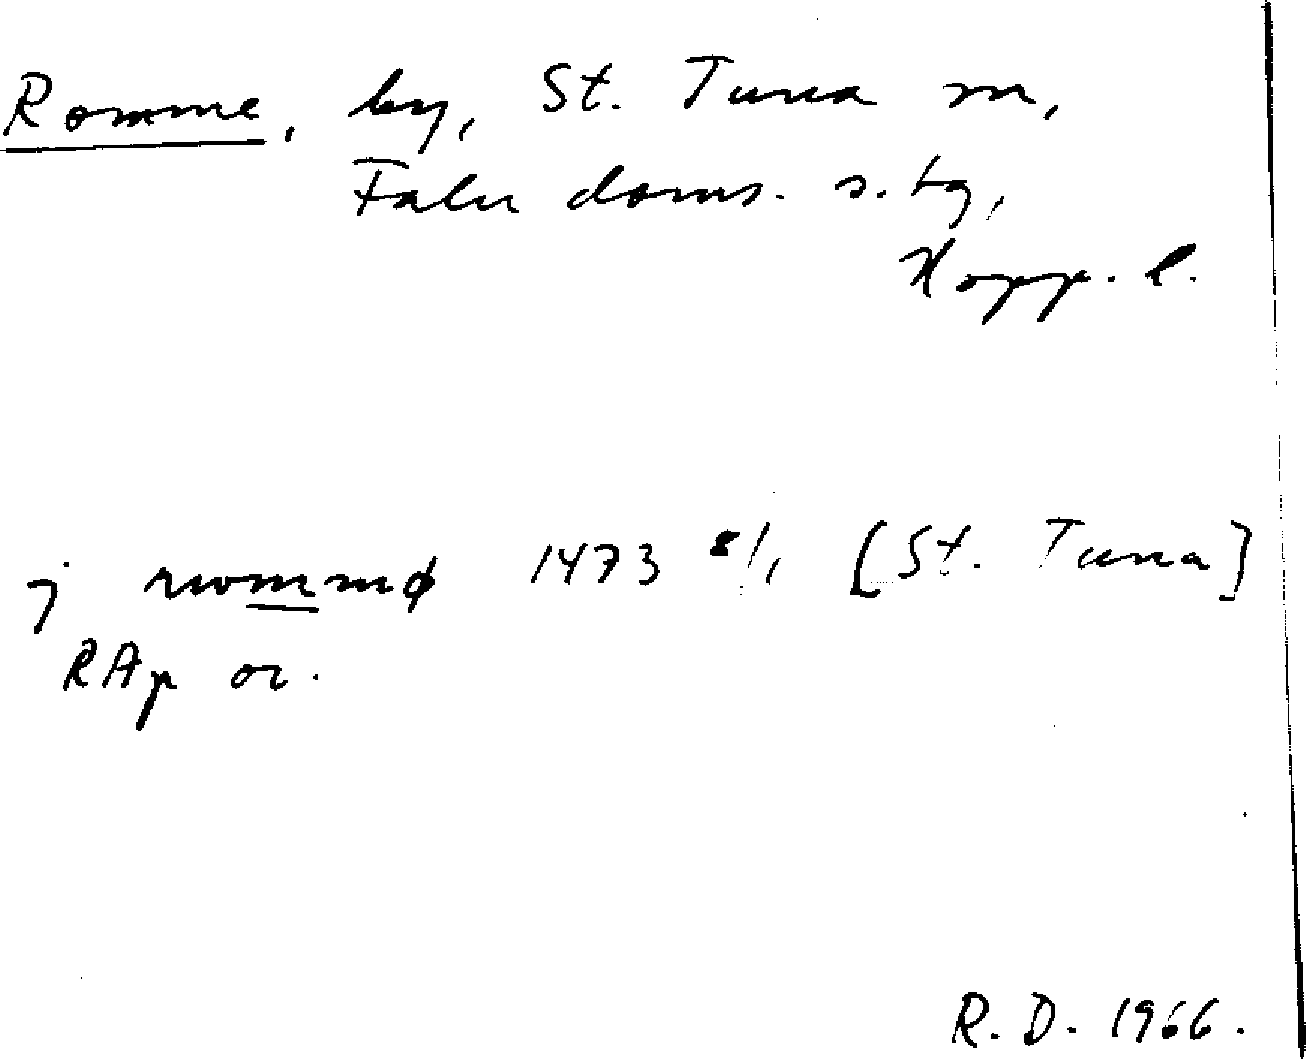 Romme, by, St. Tuna sn,
Falu doms. s. tg,
Kopp. l.
j rwommø 1473 8/1 [St. Tuna]
RAp or.
R. D. 1966.